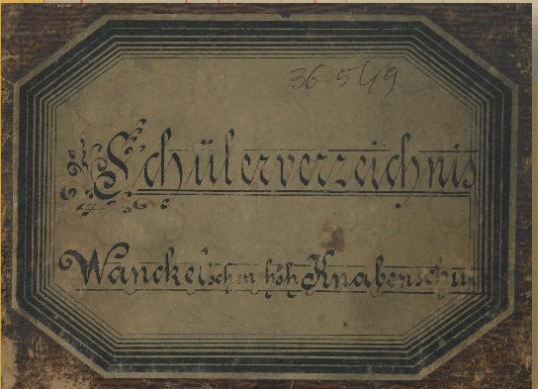 36 549
Schülerverzeichnis
Wanckelschen höh Knabenschule